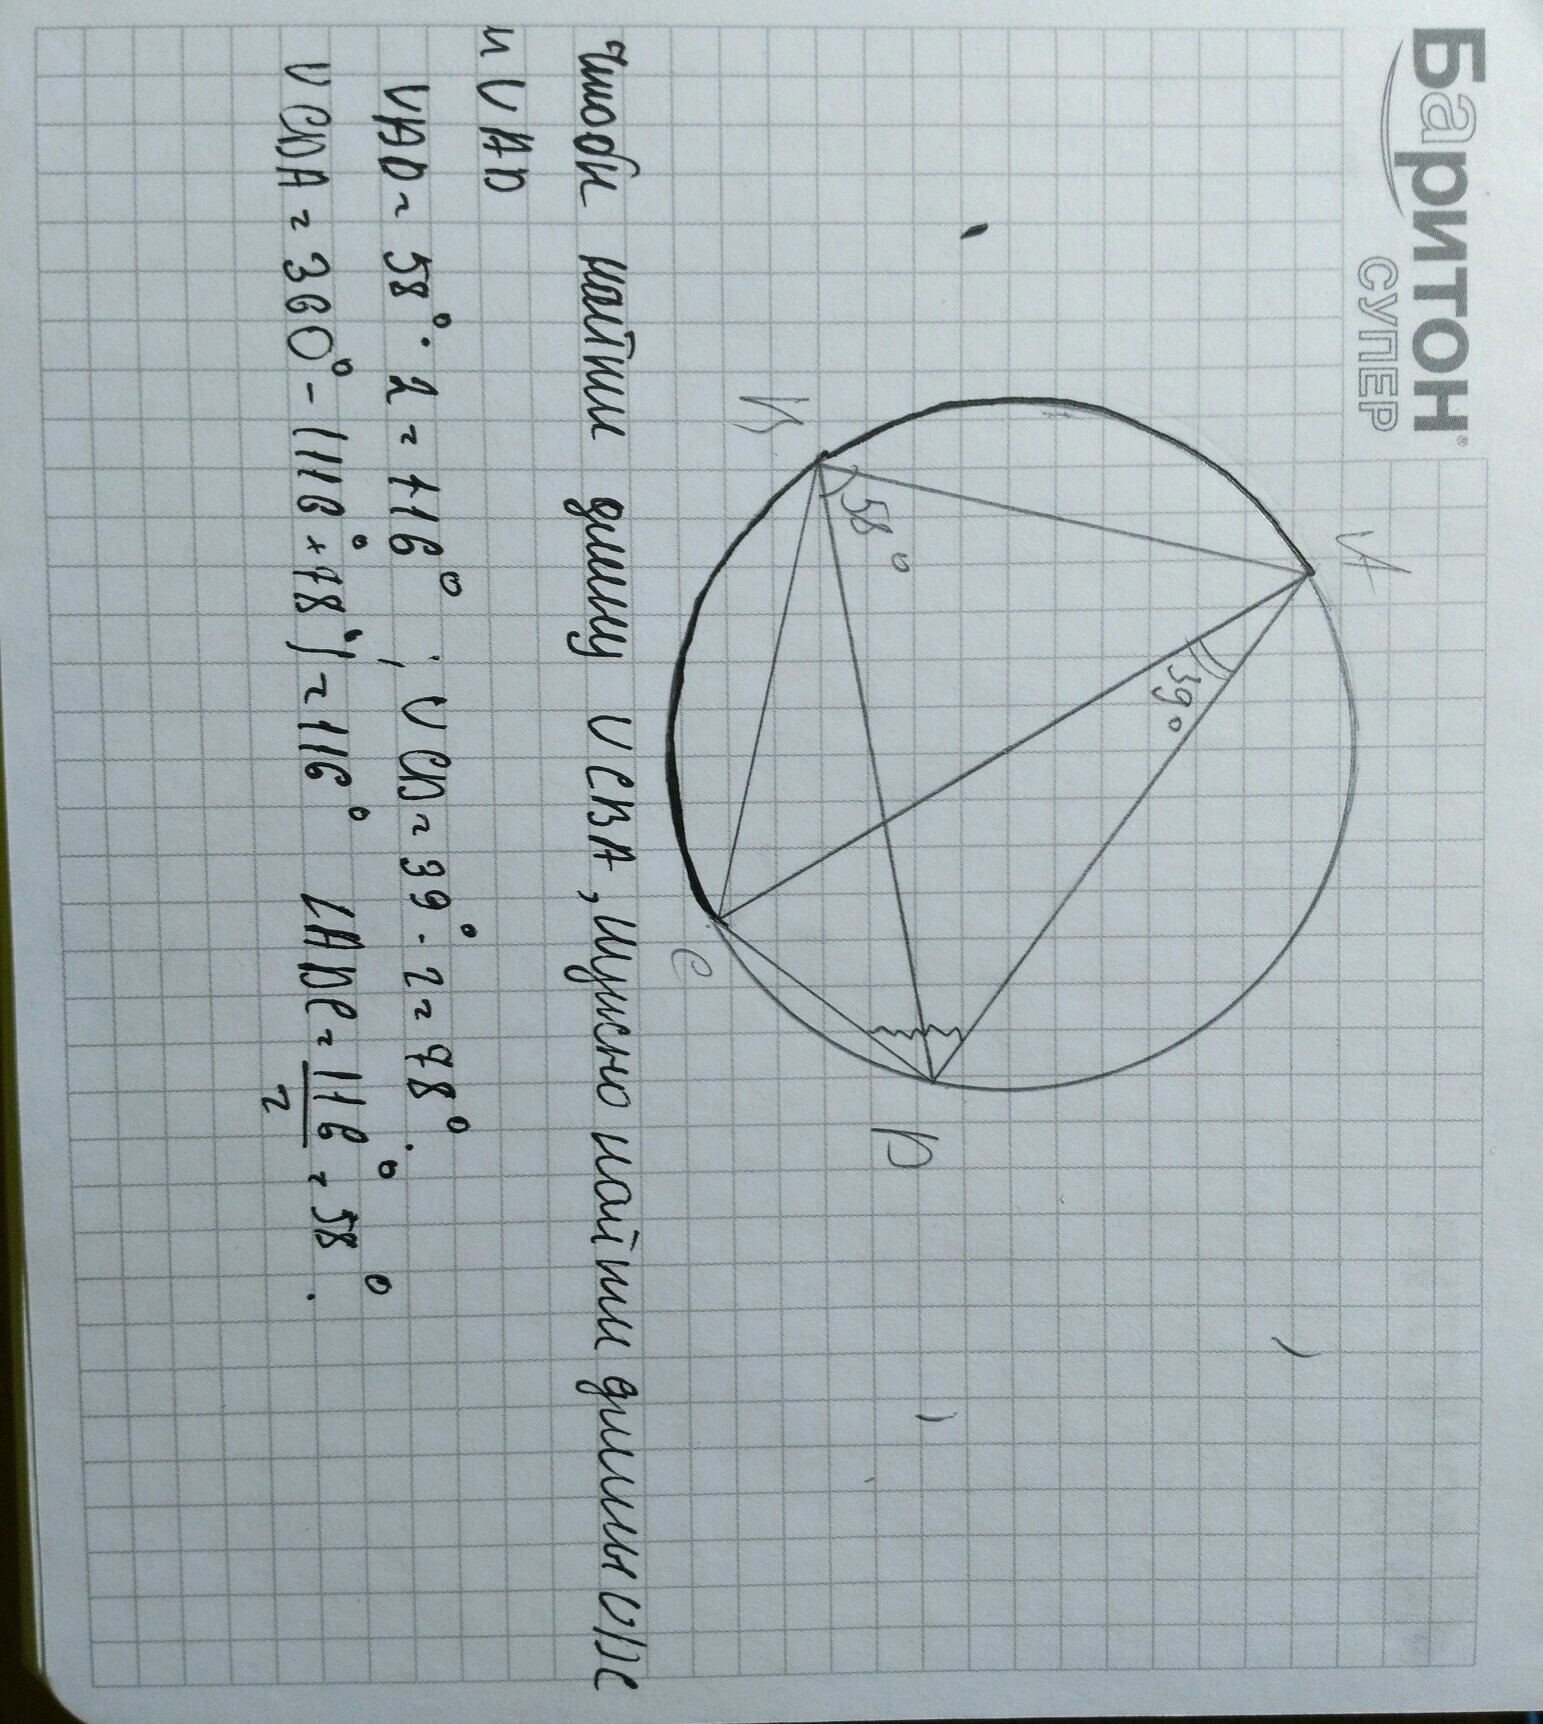 Баритон
СУПЕР
А
39°
В
58°
D
С
Чтобы найти длину ∪ CBA, нужно найти длины ∪DC
и ∪ AD
∪AD = 58° · 2 = 116° ; ∪ CD = 39° · 2 = 78°.
∪ CBA = 360° - (116° + 78°) = 116° ∠ADC = 116°/2 = 58°.